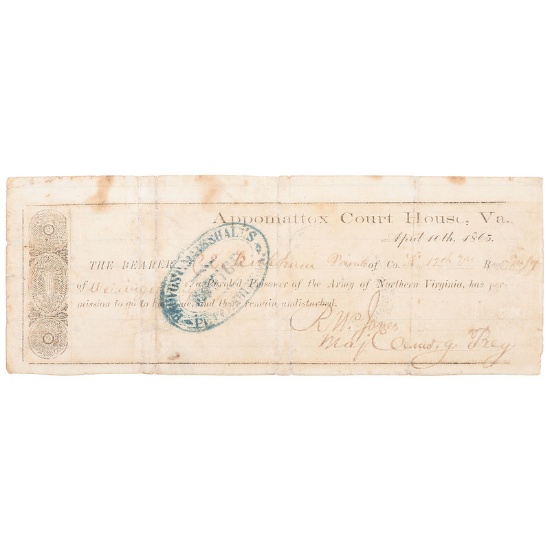 Appomattox Court House, Va.
April 10th, 1865.
THE BEARER, Private of Co. K 12th Va Reg't
of Weisiger a Paroled Prisoner of the Army of Northern Virginia, has per-
mission to go to his home, and there remain undisturbed.
R. W. Jones
Maj Comd'g Reg
PROVOST MARSHAL'S